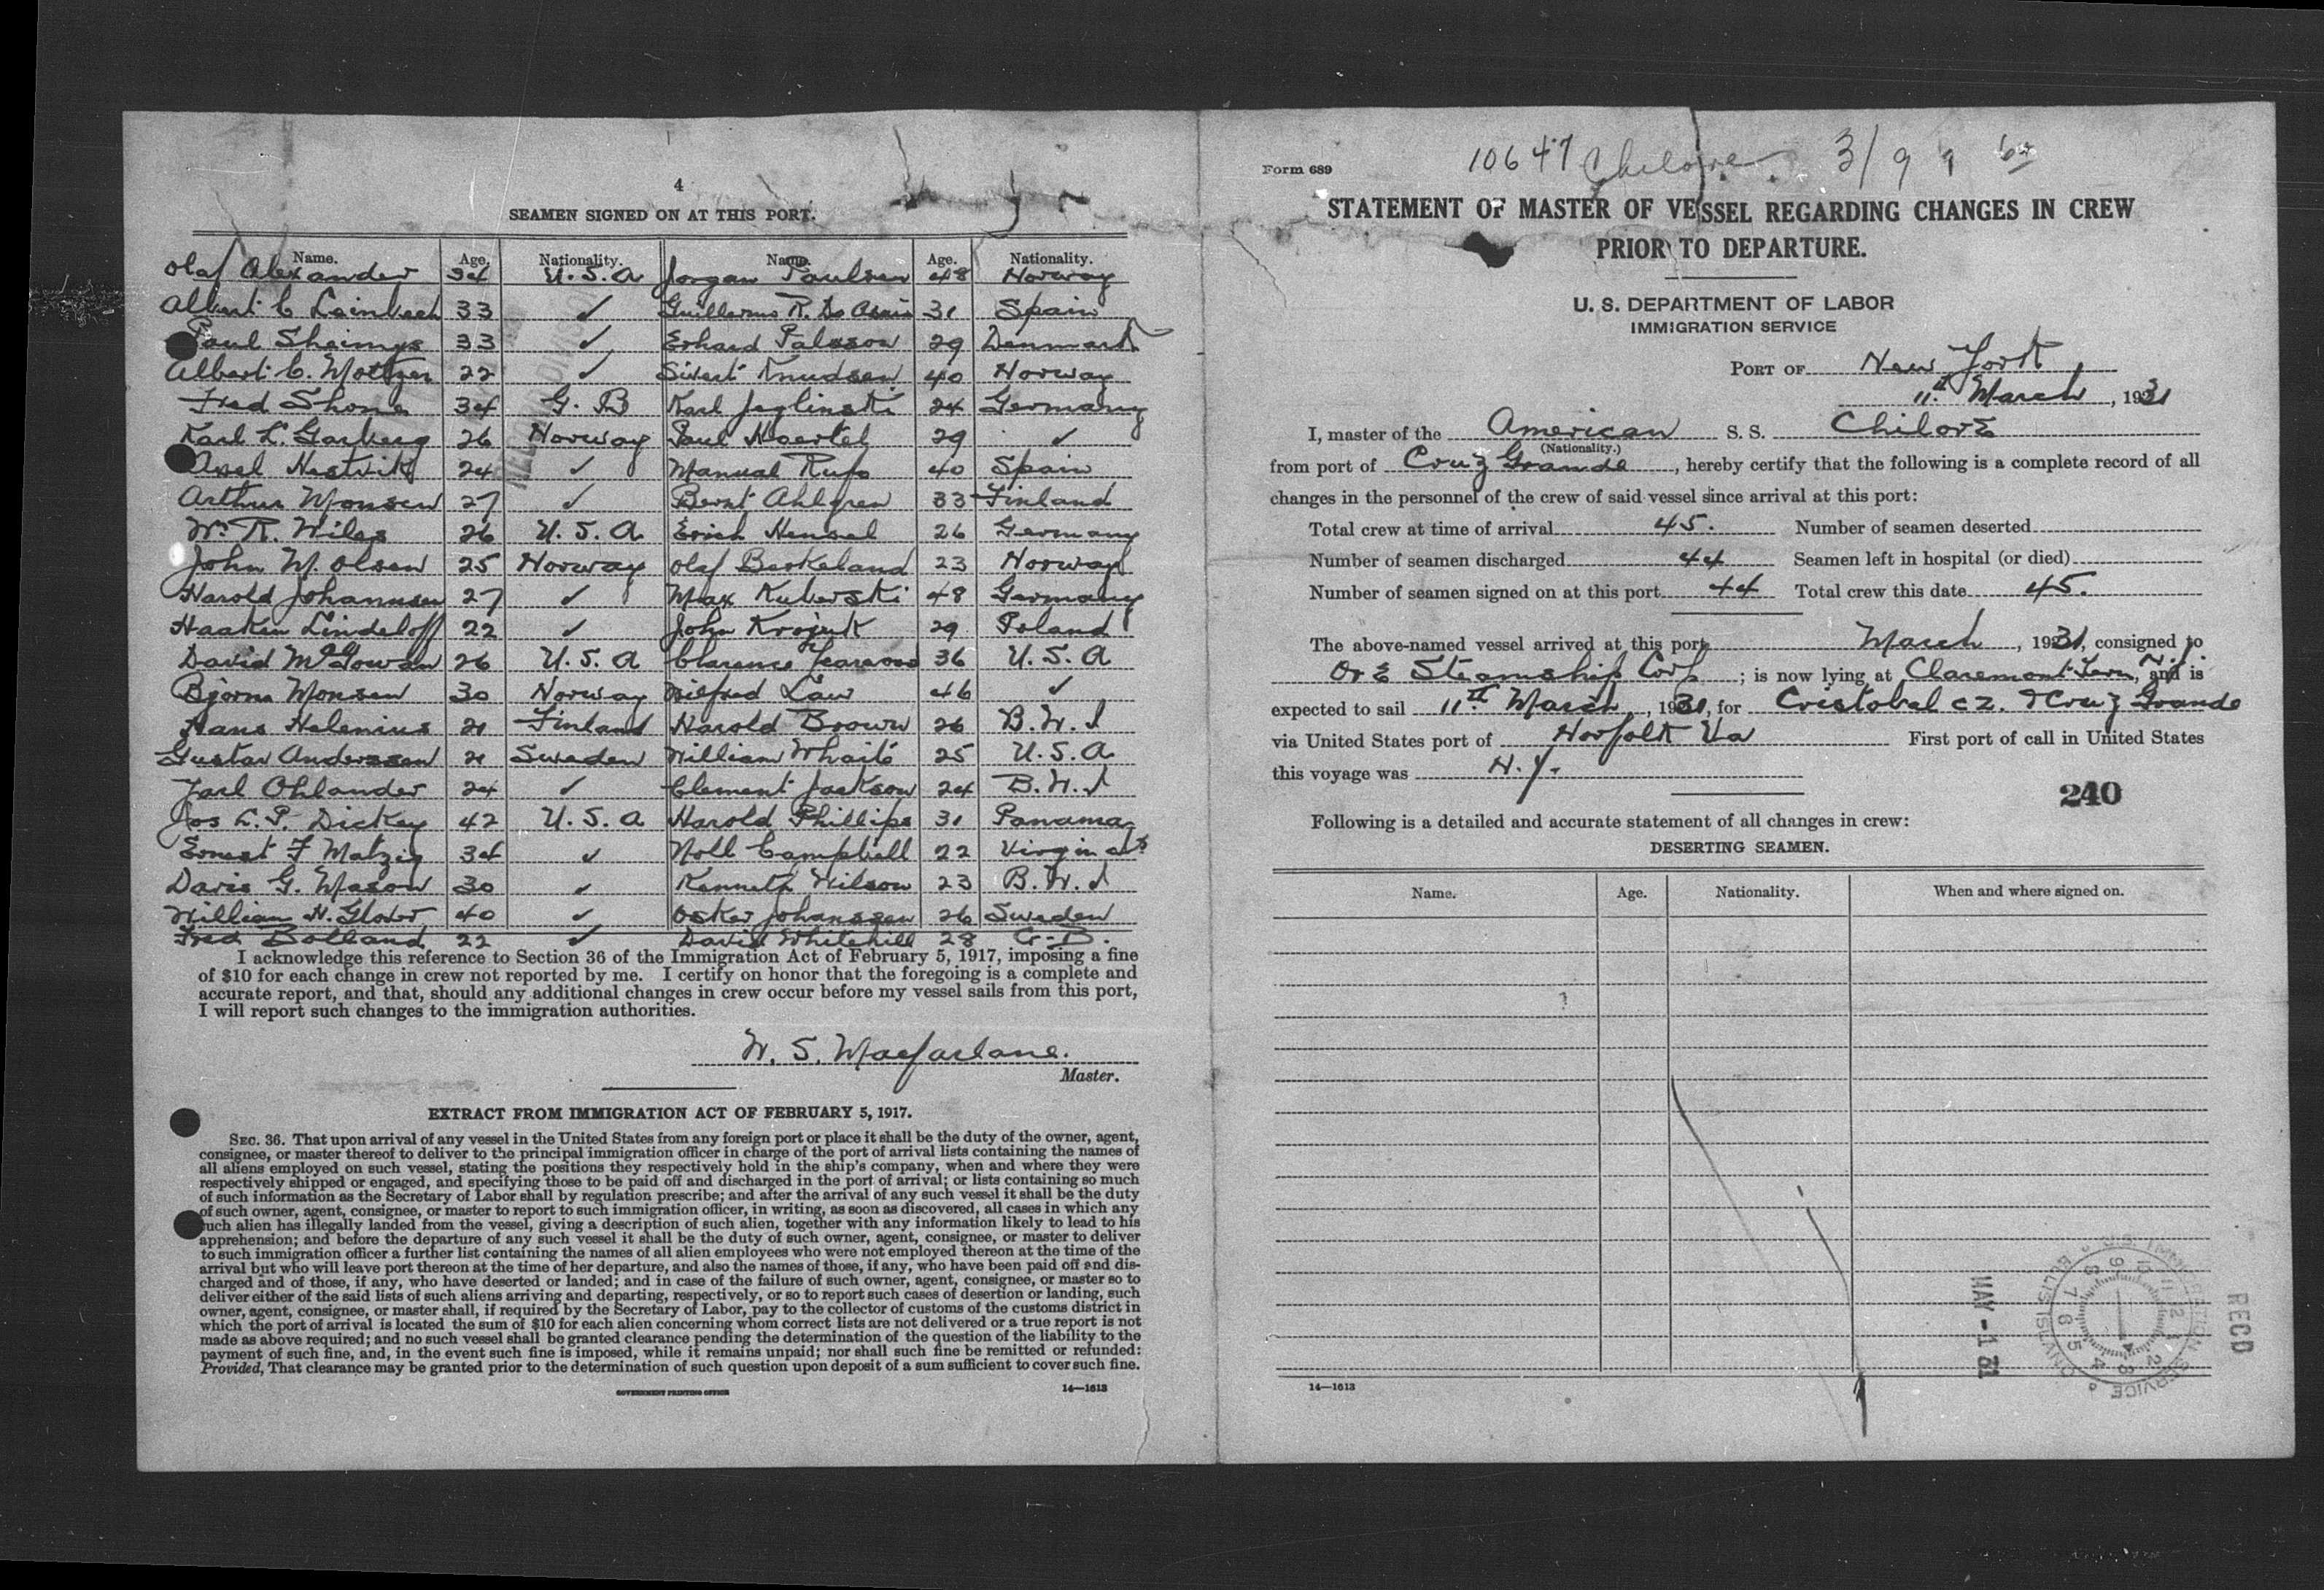 4
SEAMEN SIGNED ON AT THIS PORT.
Name. Age. Nationality. Name. Age. Nationality.
Olaf Alexander 34 U.S.A Jorgan Paulsen 48 Norway
Albert C Leinbech 33 ✓ Guillermo R. Do 31 Spain
Paul 33 ✓ Erhard Palsson 29 Denmark
Albert C. Moltzer 22 ✓ Sivert Knudsen 40 Norway
Fred Shone 34 G. B Karl Jeglinski 24 Germany
Karl L. Garberg 26 Norway Paul Haertel 29 ✓
Axel Hestvik 24 ✓ Manual Rufo 40 Spain
Arthur Monsen 27 ✓ Bernt Ahlgren 33 Finland
Wm R. Wiles 26 U.S.A Erich Hensel 26 Germany
John M. Olsen 25 Norway Olaf Berkeland 23 Norway
Harold Johannsen 27 ✓ Max Kuberski 48 Germany
Haaken Lindeloff 22 ✓ John 29 Poland
David McGowan 26 U.S.A Clarence Yearwood 36 U.S.A
Bjorne Monsen 30 Norway Wilfred Law 46 ✓
Hans Helenius 21 Finland Harold Brown 26 B.W.I
Gustav Anderssen 21 Sweden William Whaite 25 U.S.A
Jarl Ohlander 24 ✓ Clement Jackson 24 B.W.I
Jos L.P. Dickey 42 U.S.A Harold Phillips 31 Panama
Ernest F Matzig 34 ✓ Noll Campbell 22 Virgin
Davis G. Mason 30 ✓ Kenneth Wilson 23 B.W.I
William H. Glover 40 ✓ Osker Johanssen 26 Sweden
Fred Bolland 22 ✓ David Whitehill 28 G-B.
I acknowledge this reference to Section 36 of the Immigration Act of February 5, 1917, imposing a fine
of $10 for each change in crew not reported by me. I certify on honor that the foregoing is a complete and
accurate report, and that, should any additional changes in crew occur before my vessel sails from this port,
I will report such changes to the immigration authorities.
W. S. Macfarlane.
Master.
EXTRACT FROM IMMIGRATION ACT OF FEBRUARY 5, 1917.
SEC. 36. That upon arrival of any vessel in the United States from any foreign port or place it shall be the duty of the owner, agent,
consignee, or master thereof to deliver to the principal immigration officer in charge of the port of arrival lists containing the names of
all aliens employed on such vessel, stating the positions they respectively hold in the ship's company, when and where they were
respectively shipped or engaged, and specifying those to be paid off and discharged in the port of arrival; or lists containing so much
of such information as the Secretary of Labor shall by regulation prescribe; and after the arrival of any such vessel it shall be the duty
of such owner, agent, consignee, or master to report to such immigration officer, in writing, as soon as discovered, all cases in which any
such alien has illegally landed from the vessel, giving a description of such alien, together with any information likely to lead to his
apprehension; and before the departure of any such vessel it shall be the duty of such owner, agent, consignee, or master to deliver
to such immigration officer a further list containing the names of all alien employees who were not employed thereon at the time of the
arrival but who will leave port thereon at the time of her departure, and also the names of those, if any, who have been paid off and dis-
charged and of those, if any, who have deserted or landed; and in case of the failure of such owner, agent, consignee, or master so to
deliver either of the said lists of such aliens arriving and departing, respectively, or so to report such cases of desertion or landing, such
owner, agent, consignee, or master shall, if required by the Secretary of Labor, pay to the collector of customs of the customs district in
which the port of arrival is located the sum of $10 for each alien concerning whom correct lists are not delivered or a true report is not
made as above required; and no such vessel shall be granted clearance pending the determination of the question of the liability to the
payment of such fine, and, in the event such fine is imposed, while it remains unpaid; nor shall such fine be remitted or refunded:
Provided, That clearance may be granted prior to the determination of such question upon deposit of a sum sufficient to cover such fine.
GOVERNMENT PRINTING OFFICE 14—1613
Form 689 10647 Chilore 3/9
STATEMENT OF MASTER OF VESSEL REGARDING CHANGES IN CREW
PRIOR TO DEPARTURE.
U. S. DEPARTMENT OF LABOR
IMMIGRATION SERVICE
PORT OF New York
11th March, 1931
I, master of the American S. S. Chilore
(Nationality.)
from port of Cruz Grande, hereby certify that the following is a complete record of all
changes in the personnel of the crew of said vessel since arrival at this port:
Total crew at time of arrival 45. Number of seamen deserted
Number of seamen discharged 44 Seamen left in hospital (or died)
Number of seamen signed on at this port 44 Total crew this date 45.
The above-named vessel arrived at this port March, 1931, consigned to
Ore Steamship Corp; is now lying at Claremont Term, and is
expected to sail 11th March, 1931, for Cristobal C Z. & Cruz Grande
via United States port of Norfolk Va First port of call in United States
this voyage was N.Y.
240
Following is a detailed and accurate statement of all changes in crew:
DESERTING SEAMEN.
Name. Age. Nationality. When and where signed on.
U.S. IMMIGRATION SERVICE
ELLIS ISLAND
RECD
MAY -1 31
14—1613